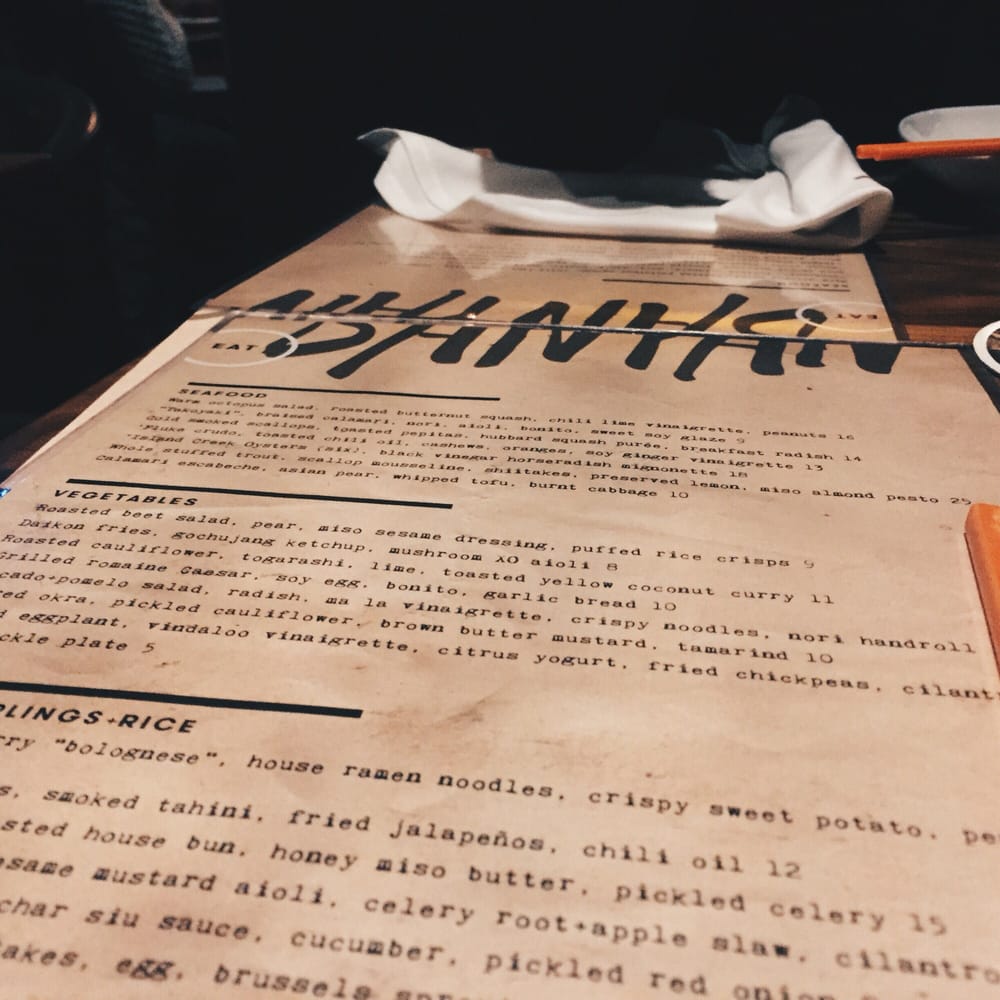 BANYAN
EAT
EAT
SEAFOOD
Warm octopus salad, roasted butternut squash, chili lime vinaigrette, peanuts 16
"Takoyaki", braised calamari, nori, aioli, bonito, sweet soy glaze 9
Cold smoked scallops, toasted pepitas, hubbard squash purée, breakfast radish 14
*Fluke crudo, toasted chili oil, cashews, oranges, soy ginger vinaigrette 13
*Island Creek Oysters (six), black vinegar horseradish mignonette 18
Whole stuffed trout, scallop mousseline, shiitakes, preserved lemon, miso almond pesto 25
Calamari escabeche, asian pear, whipped tofu, burnt cabbage 10
VEGETABLES
Roasted beet salad, pear, miso sesame dressing, puffed rice crisps 9
Daikon fries, gochujang ketchup, mushroom XO aioli 8
Roasted cauliflower, togarashi, lime, toasted yellow coconut curry 11
Grilled romaine Caesar, soy egg, bonito, garlic bread 10
cado+pomelo salad, radish, ma la vinaigrette, crispy noodles, nori handroll
ed okra, pickled cauliflower, brown butter mustard, tamarind 10
d eggplant, vindaloo vinaigrette, citrus yogurt, fried chickpeas, cilant
ckle plate 5
PLINGS+RICE
rry "bolognese", house ramen noodles, crispy sweet potato, pe
s, smoked tahini, fried jalapeños, chili oil 12
sted house bun, honey miso butter, pickled celery 15
esame mustard aioli, celery root+apple slaw, cilantro
char siu sauce, cucumber, pickled red onion
takes, egg, brussels spro